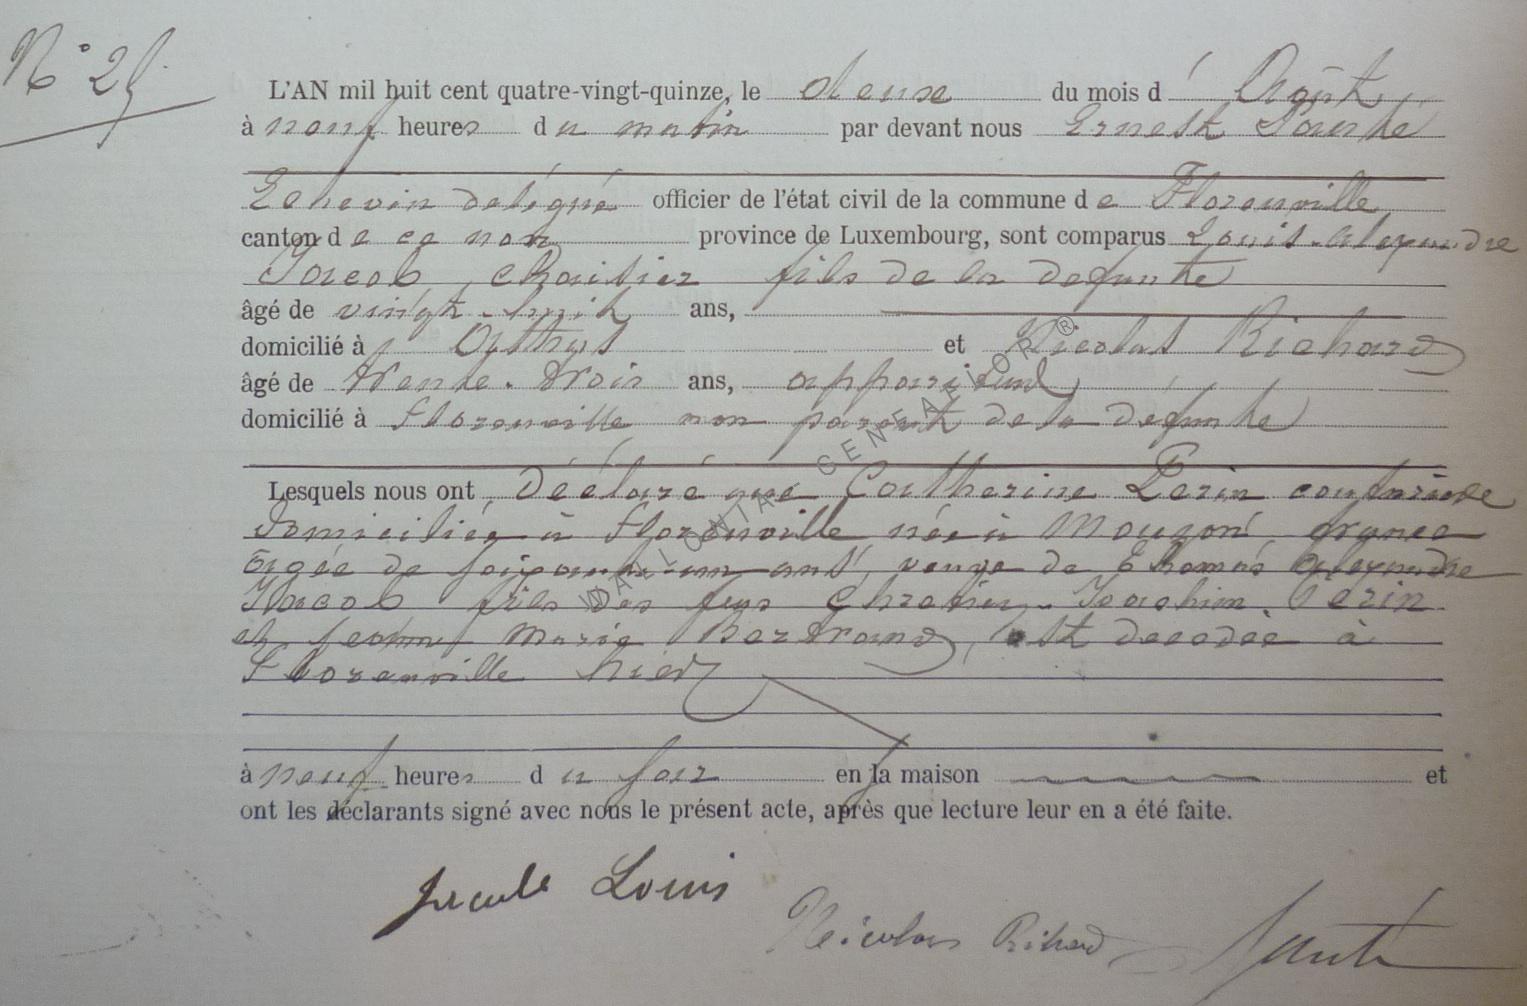 N° 25
L'AN mil huit cent quatre-vingt-quinze, le deuse du mois d' Août
à neuf heures du matin par devant nous Ernest Santé
Echevin délégué officier de l'état civil de la commune de Florenville
canton de ce nom province de Luxembourg, sont comparus Louis-Alexandre
Jacob, fils de la defunte
âgé de vingt-huit ans,
domicilié à et Nicolas Richard
âgé de trente-trois ans, appariteur,
domicilié à Florenville non parent de la défunte
Lesquels nous ont déclaré que Catherine Perin couturière
domiciliée à Florenville née à Mouzon france
âgée de soixante-un ans, veuve de Thomas Alexandre
Jacob fille des feus Chretien-Joachim Perin
et Marie Bertrand, est decedée à
Florenville hier
à neuf heures du soir en la maison et
ont les déclarants signé avec nous le présent acte, après que lecture leur en a été faite.
Jacob Louis
Nicolas Rihard Santé
WALLONIA GENEAFLOR ®